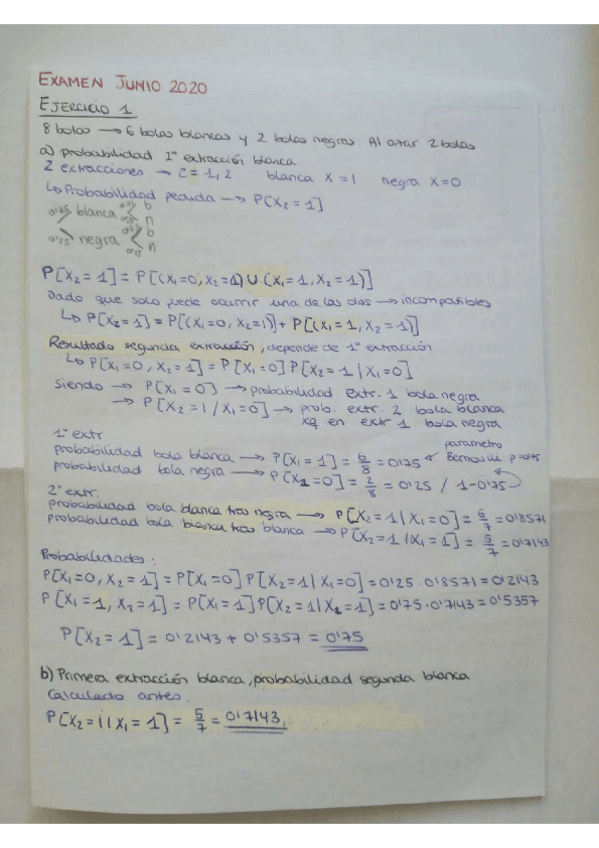 EXAMEN JUNIO 2020
EJERCICIO 1
8 bolas → 6 bolas blancas y 2 bolas negras. Al azar 2 bolas
a) probabilidad 2ª extracción blanca
2 extracciones → i = 1, 2 blanca X = 1 negra X = 0
↳ Probabilidad pedida → P[X₂ = 1]
0'75 blanca b n
0'25 negra b n
P[X₂ = 1] = P[(X₁=0, X₂=1) ∪ (X₁=1, X₂=1)]
Dado que solo puede ocurrir una de las dos → incompatibles
↳ P[X₂=1] = P[(X₁=0, X₂=1)] + P[(X₁=1, X₂=1)]
Resultado segunda extracción, depende de 1ª extracción
↳ P[X₁=0, X₂=1] = P[X₁=0] P[X₂=1 | X₁=0]
siendo → P[X₁=0] → probabilidad extr. 1 bola negra
→ P[X₂=1 / X₁=0] → prob. extr. 2 bola blanca
xq en extr 1 bola negra
1ª extr
parametro
probabilidad bola blanca → P[X₁=1] = 6/8 = 0'75 Bernoulli
probabilidad bola negra → P[X₁=0] = 2/8 = 0'25 / 1-0'75
2ª extr.
probabilidad bola blanca tras negra → P[X₂=1 | X₁=0] = 6/7 = 0'8571
probabilidad bola blanca tras blanca → P[X₂=1 | X₁=1] = 5/7 = 0'7143
Probabilidades:
P[X₁=0, X₂=1] = P[X₁=0] P[X₂=1 | X₁=0] = 0'25 · 0'8571 = 0'2143
P[X₁=1, X₂=1] = P[X₁=1] P[X₂=1 | X₁=1] = 0'75 · 0'7143 = 0'5357
P[X₂=1] = 0'2143 + 0'5357 = 0'75
b) Primera extracción blanca, probabilidad segunda blanca
Calculado antes.
P[X₂=1 | X₁=1] = 5/7 = 0'7143